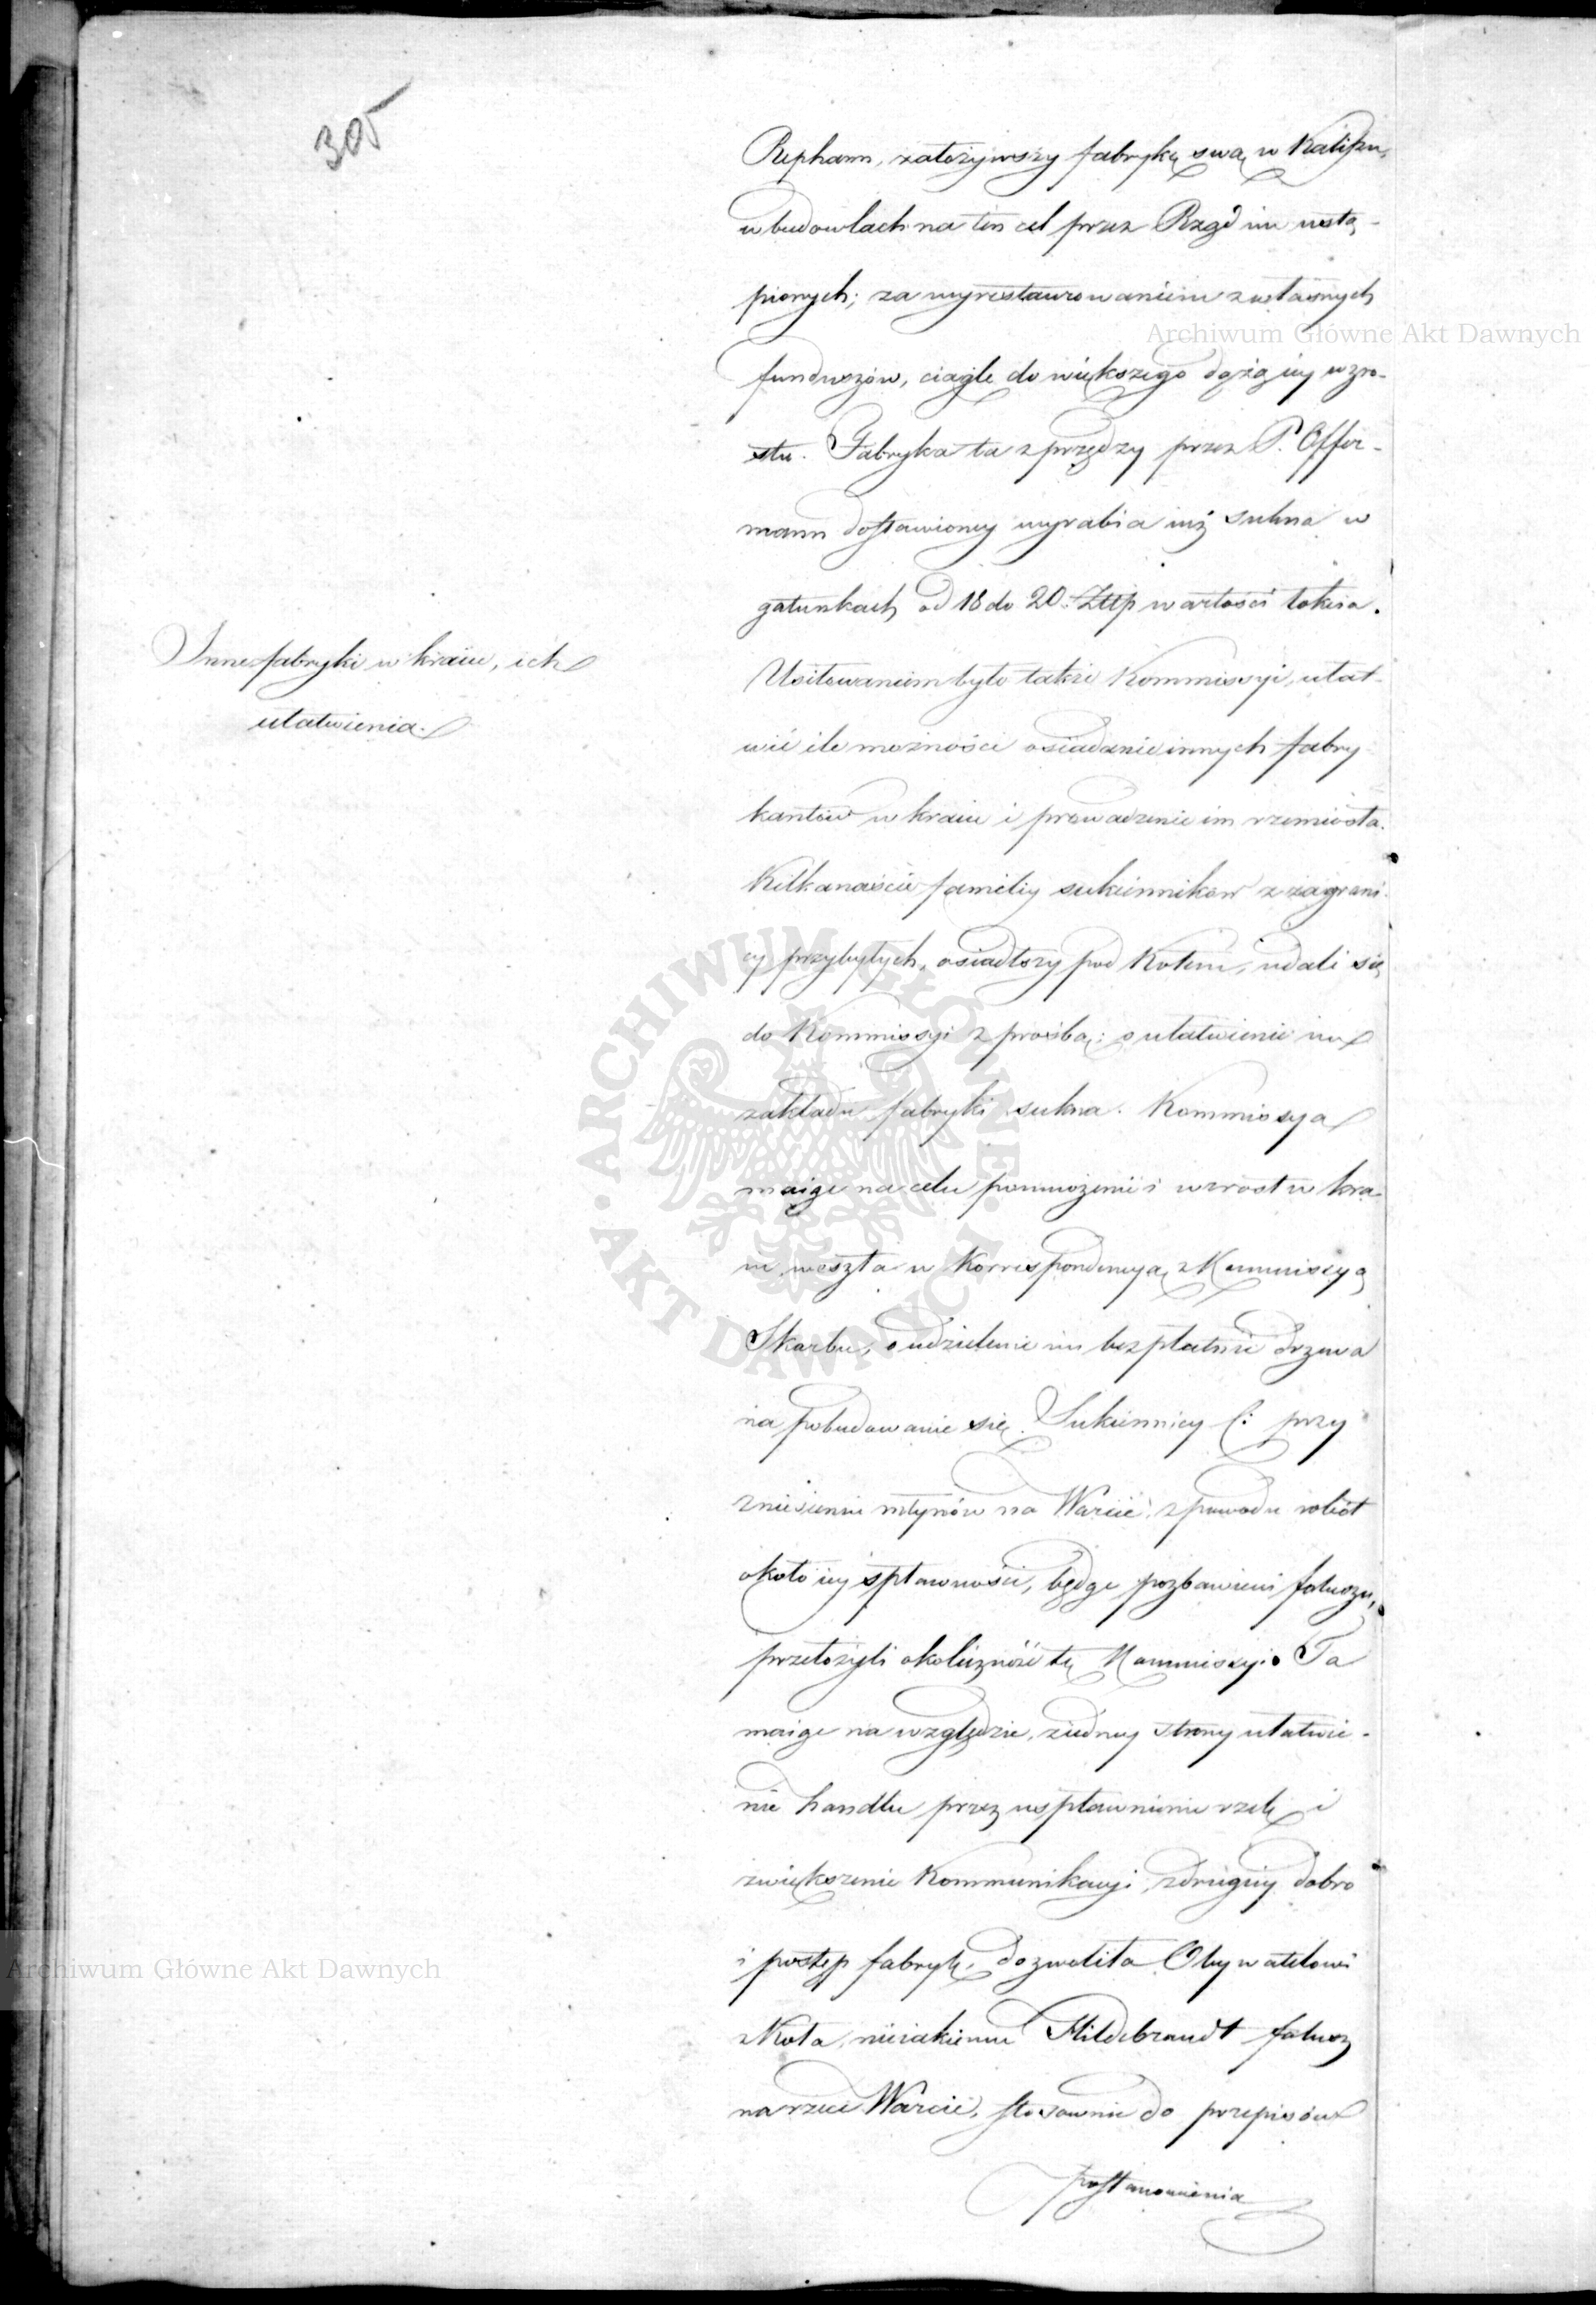 305
Rephann, założywszy fabrykę swą w Kaliszu,
w budowlach na ten cel przez Rząd im ustą-
pionych; za wyrestaurowaniem z własnych
funduszów, ciągle do większego dążą iey wzro-
stu. Fabryka ta z przędzy przez P. Offer-
mann dostawioney wyrabia iuż sukna w
gatunkach od 18 do 20 Złłp wartości łokcia.
Inne fabryki w kraiu, ich
ułatwienia.
Usiłowaniem było także Kommissyi, ułat-
wić ile możności osiadanie innych fabry-
kantów w kraiu i prowadzenie im rzemiosła.
Kilkanaście familiy sukienników z zagrani-
cy przybyłych, osiadłszy pod Kołem, udali się
do Kommissyi z prośbą; o ułatwienie im
zakładu fabryki sukna. Kommissya
maiąc na celu pomnożenie i wzrost w kra-
iu, weszła w Korrespondencyą z Kommissyą
Skarbu, o udzielenie im bezpłatnie drzewa
na pobudowanie się. Sukiennicy C: przy
zniesieniu młynów na Warcie, z powodu robót
około iey spławności, będąc pozbawieni foluszu,
przełożyli okoliczność tę Kommissyi. Ta
maiąc na względzie, z iedney strony ułatwie-
nie handlu przez uspławnienie rzek i
zwiększenie Kommunikacyi, z drugiey dobro
i postęp fabryk, dozwoliła Obywatelowi
z Koła, nieiakiemu Hildebrandt folusz
na rzece Warcie, stosownie do przepisów
postanowienia
Archiwum Główne Akt Dawnych
Archiwum Główne Akt Dawnych
ARCHIWUM GŁÓWNE · AKT DAWNYCH ·